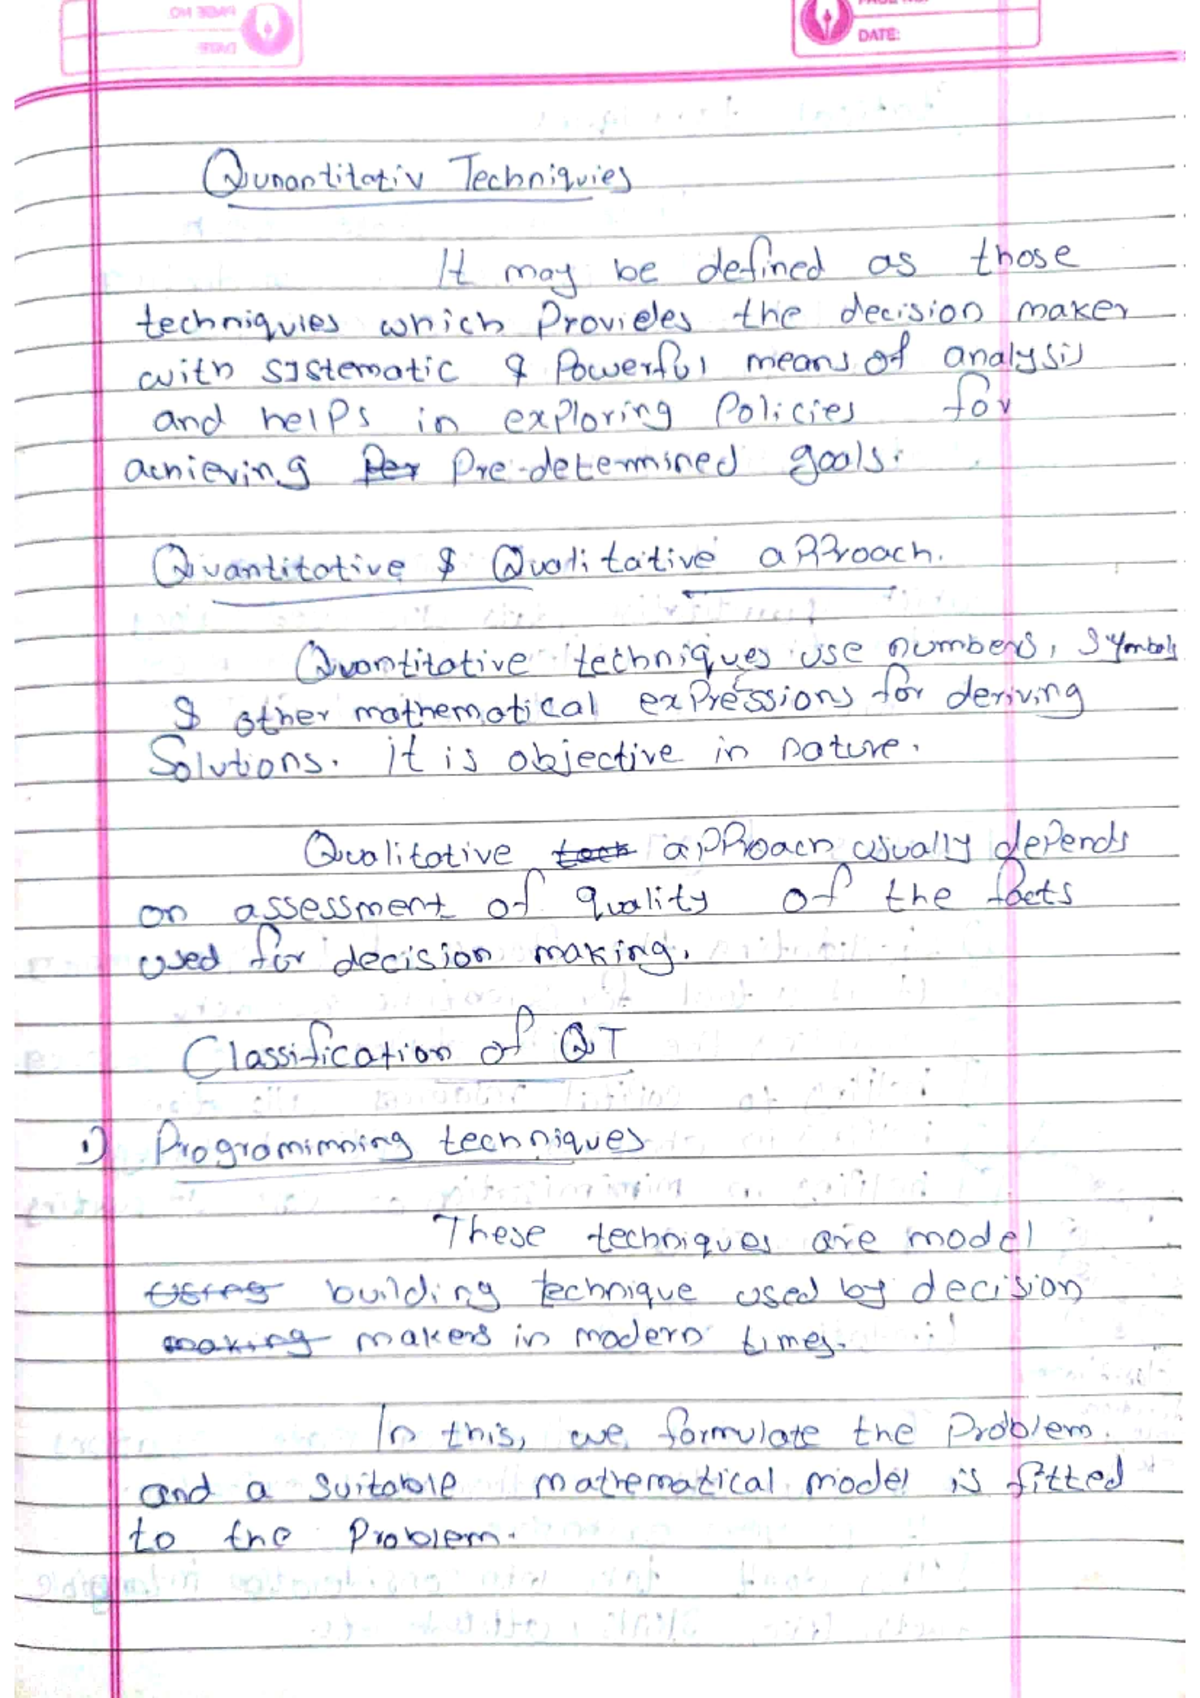 DATE:
Qunantitativ Techniquies
It may be defined as those
techniquies which Provieles the decision maker
with systematic & Powerful means of analysis
and helps in exploring Policies for
achieving Per Pre-determined goals.
Quantitative & Qualitative approach.
Quantitative techniques use numbers, symbols
& other mathematical expressions for deriving
Solutions. it is objective in nature.
Qualitative tech approach usually depends
on assessment of quality of the facts
used for decision making.
Classification of QT
1) Programimning techniques
These techniques are model
Using building technique used by decision
making makers in modern times.
In this, we formulate the Problem
and a suitable mathematical model is fitted
to the Problem.